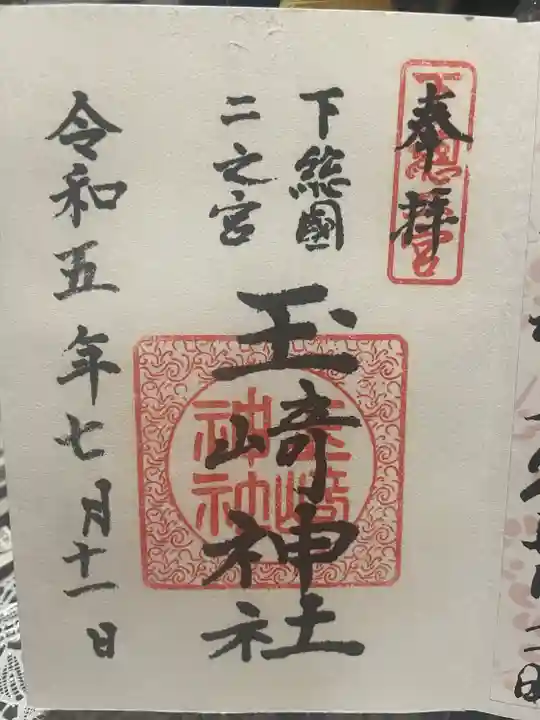 奉拝
下総國
二之宮
玉崎神社
玉崎
神社
令和五年七月十一日